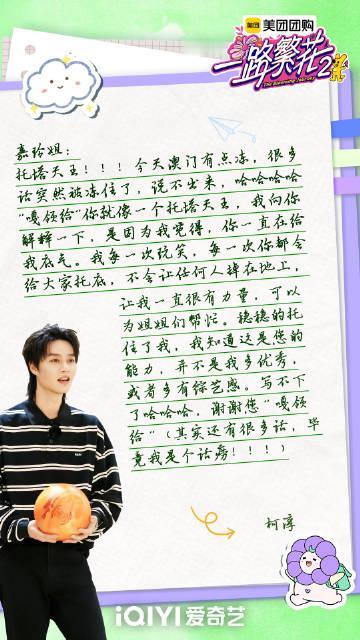 美团 美团团购
一路繁花2
嘉玲姐：
托塔天王！！！今天澳门有点冻，很多
话突然被冻住了，说不出来，哈哈哈哈
“嘎领给”你就像一个托塔天王，我向你
解释一下，是因为我觉得，你一直在给
我底气。我每一次玩笑，每一次你都会
给大家托底，不会让任何人掉在地上，
让我一直很有力量，可以
为姐姐们帮忙。稳稳的托
住了我，我知道这是您的
能力，并不是我多优秀，
或者多有综艺感。写不下
了哈哈哈，谢谢您“嘎领
给”（其实还有很多话，毕
竟我是个话痨！！！）
柯淳
iQIYI 爱奇艺